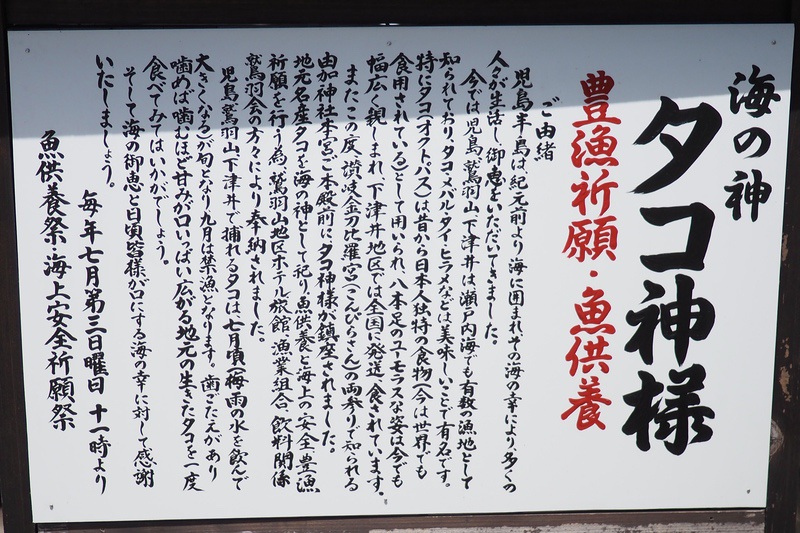 海の神
タコ神様
豊漁祈願・魚供養
ご由緒
児島半島は、紀元前より海に囲まれその海の幸により、多くの
人々が生活し、御恵をいただいてきました。
今では児島鷲羽山、下津井は瀬戸内海でも有数の漁地として
知られており、タコ・メバル・タイ・ヒラメなどは美味しいことで有名です。
特にタコ(オクトパス)は昔から日本人独特の食物(今は世界でも
食用されている)として用いられ、八本足のユーモラスな姿は今でも
幅広く親しまれ、下津井地区では全国に発送、食されています。
またこの度、讃岐金刀比羅宮(こんぴらさん)の両参りで知られる
由加神社本宮ご本殿前にタコ神様が鎮座されました。
地元名産タコを海の神として祀り魚供養と海上の安全、豊漁
祈願を行う為、鷲羽山地区ホテル旅館、漁業組合、飲料関係
鷲羽会の方々により奉納されました。
児島鷲羽山下津井で捕れるタコは七月頃(梅雨の水を飲んで
大きくなる)が旬となり、九月は禁漁となります。歯ごたえがあり
噛めば噛むほど甘みが口いっぱい広がる地元の生きたタコを一度
食べてみてはいかがでしょう。
そして海の御恵と日頃皆様が口にする海の幸に対して感謝
いたしましょう。
毎年七月第三日曜日 十一時より
魚供養祭・海上安全祈願祭